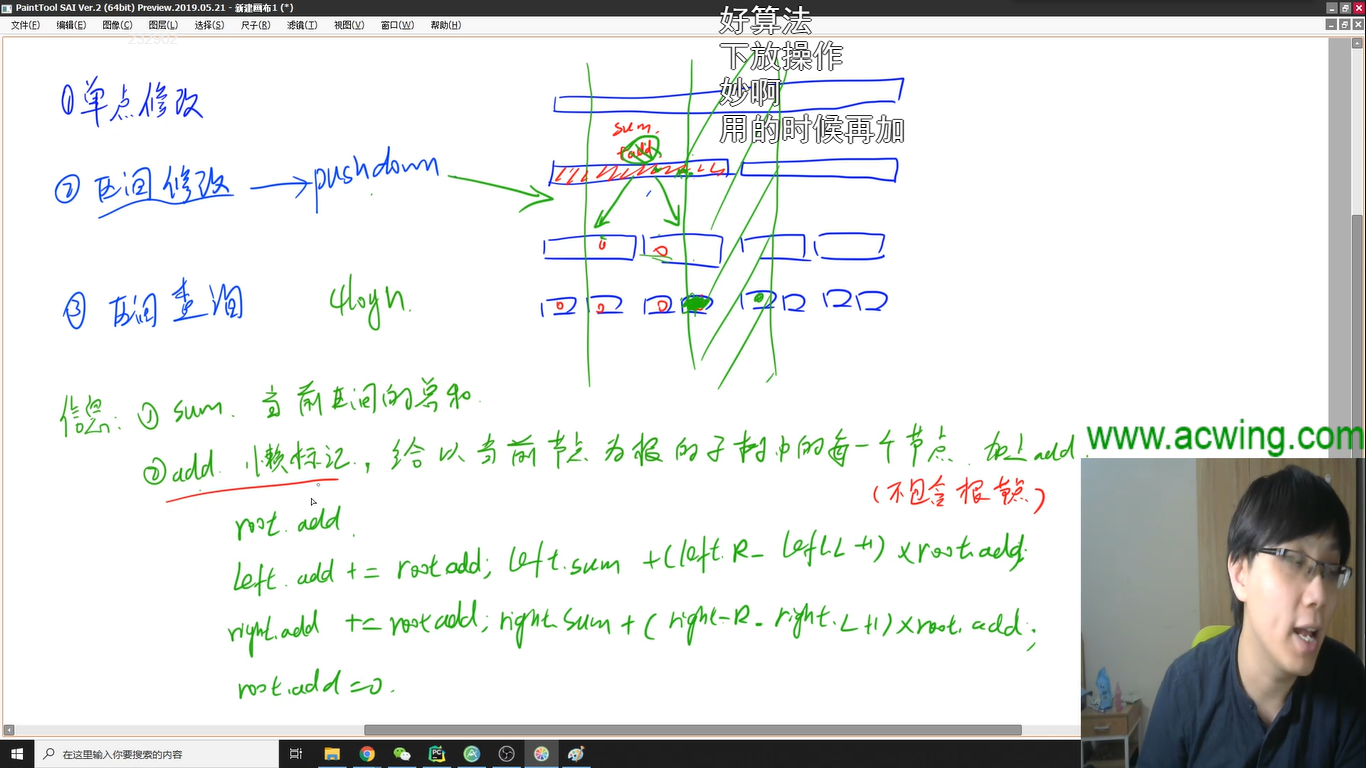 PaintTool SAI Ver.2 (64bit) Preview.2019.05.21 - 新建画布1 (*)
文件(F) 编辑(E) 图像(C) 图层(L) 选择(S) 尺子(R) 滤镜(T) 视图(V) 窗口(W) 帮助(H)
好算法
下放操作
妙啊
用的时候再加
①单点修改
sum.
+add
② 区间修改 → pushdown
③ 区间查询 4logn.
信息: ① sum. 当前区间的总和.
②add. 懒标记, 给以当前节点为根的子树中的每一个节点. 加上add.
(不包含根节点)
www.acwing.com
root.add.
left.add += root.add; left.sum +(left.R- left.L+1)×root.add;
right.add += root.add; right.sum + (right.R - right.L+1)×root.add;
root.add=0.
在这里输入你要搜索的内容